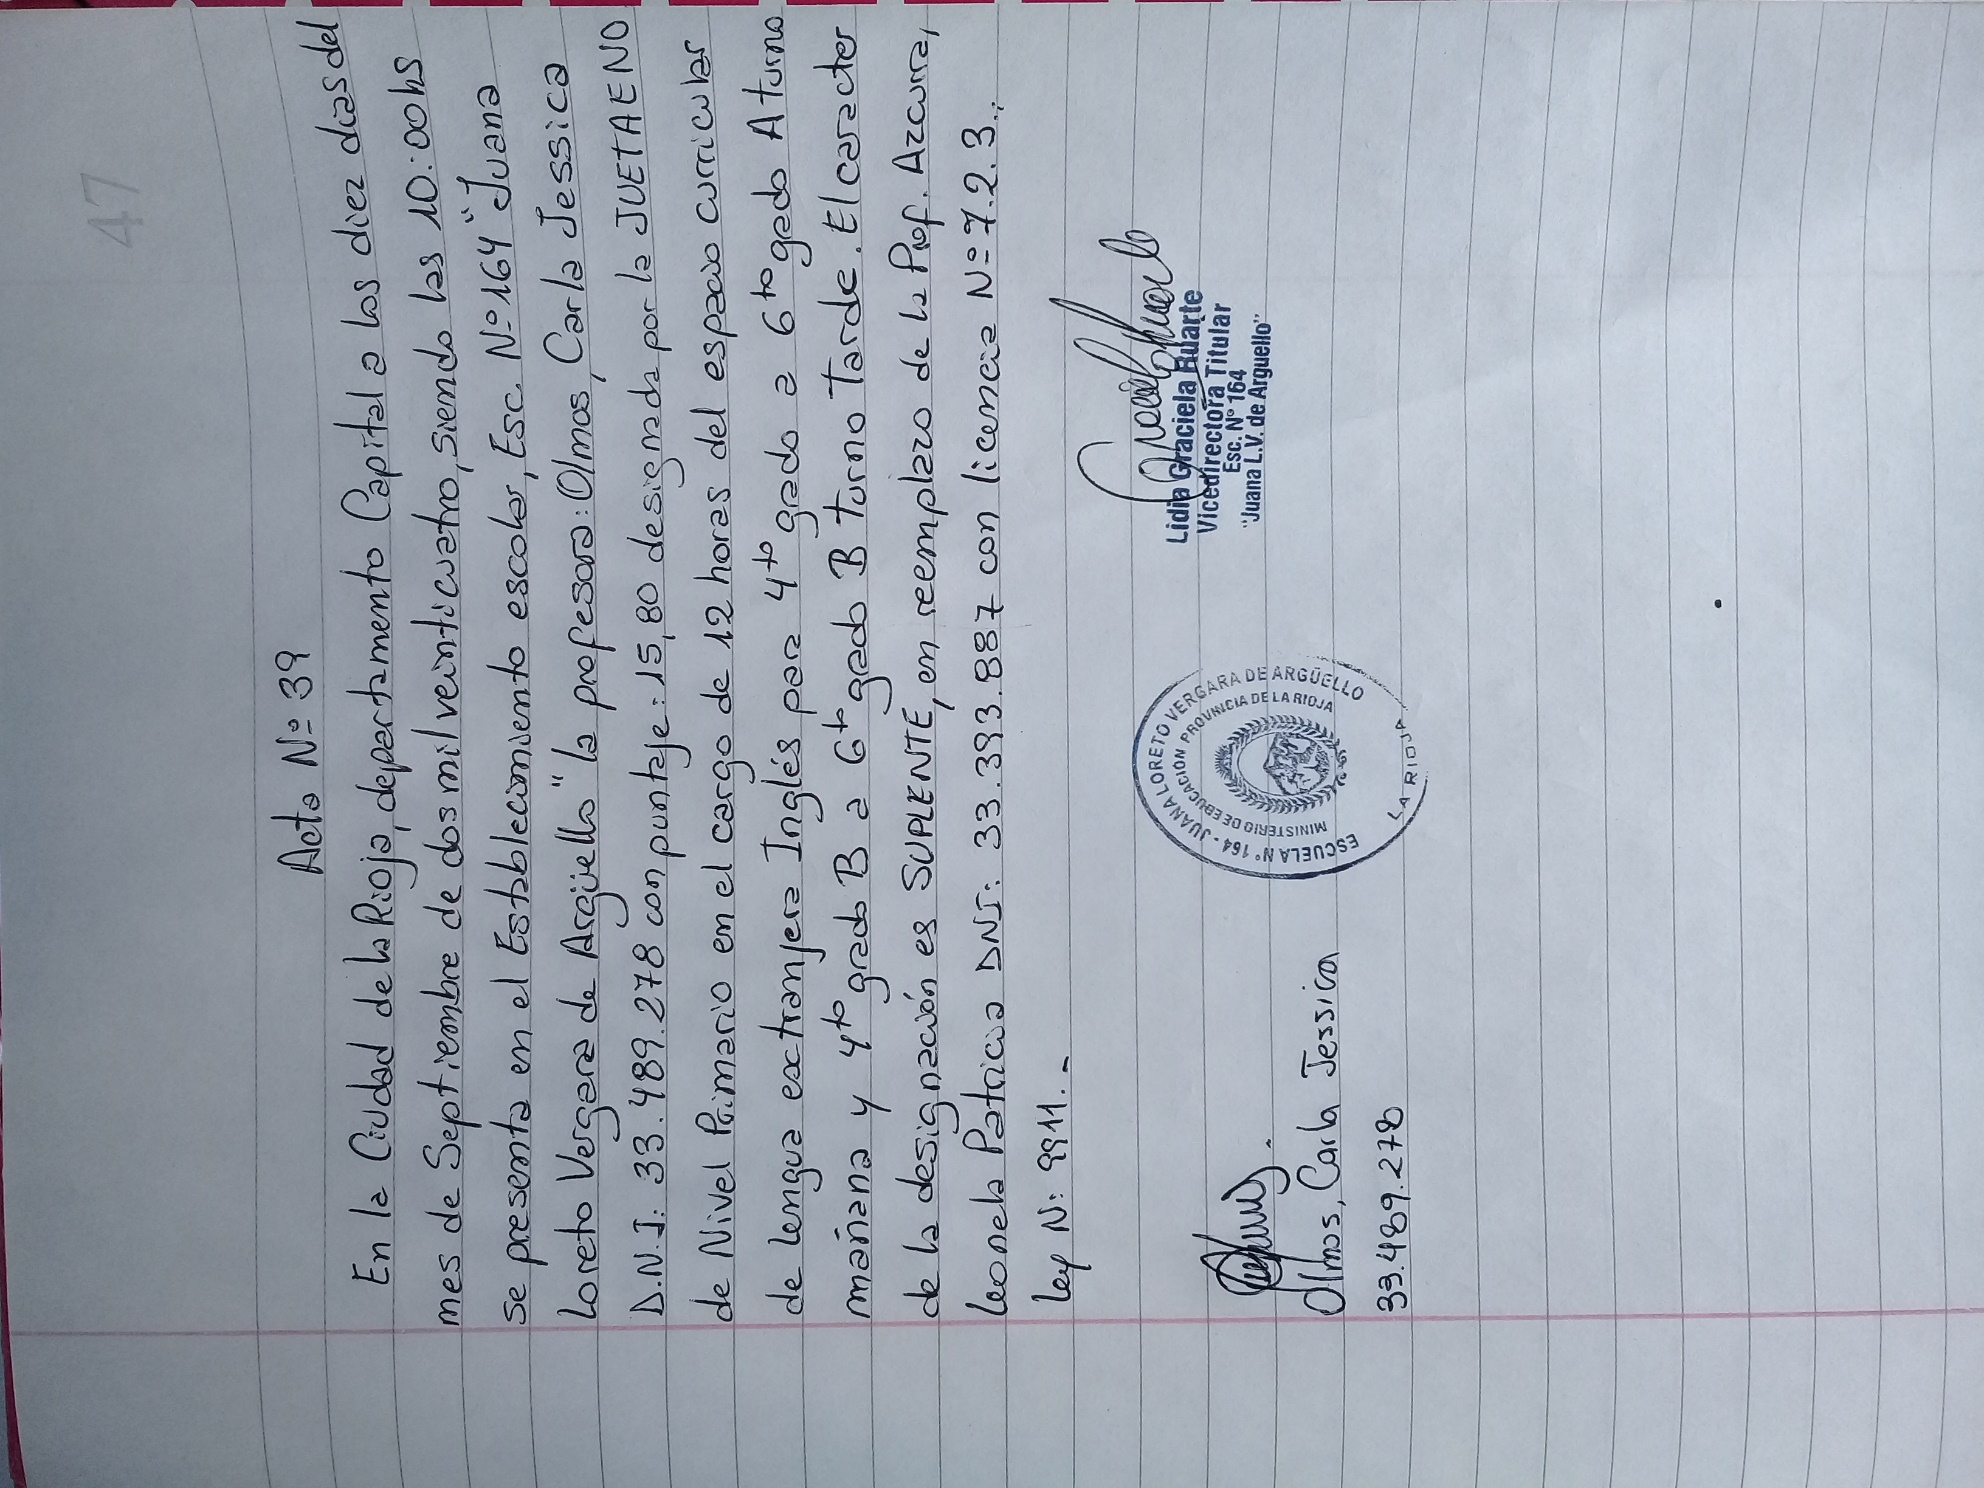 47
Acta N° 39
En la Ciudad de la Rioja, departamento Capital a los diez dias del
mes de Septiembre de dos mil veinticuatro, siendo las 10:00hs
se presenta en el Establecimiento escolar, Esc. N° 164 "Juana
Loreto Vergara de Argüello" la profesora: Olmos, Carla Jessica
D.N.I: 33.489.278 con puntaje: 15,80 designada por la JUETAENO
de Nivel Primario en el cargo de 12 horas del espacio curricular
de lengua extranjera Inglés para 4to grado a 6to grado A turno
mañana y 4to grado B a 6to grado B turno Tarde. El caracter
de la designación es SUPLENTE, en reemplazo de la Prof. Azcurra,
Leonela Patricia DNI: 33.393.887 con licencia N° 7.2.3.
Ley N: 9911.-
Lidia Graciela Ruarte
Vicedirectora Titular
Esc. N° 164
"Juana L.V. de Arguello"
ESCUELA N° 164 - JUANA LORETO VERGARA DE ARGÜELLO
MINISTERIO DE EDUCACIÓN PROVINCIA DE LA RIOJA
LA RIOJA
Olmos, Carla Jessica
33.489.278